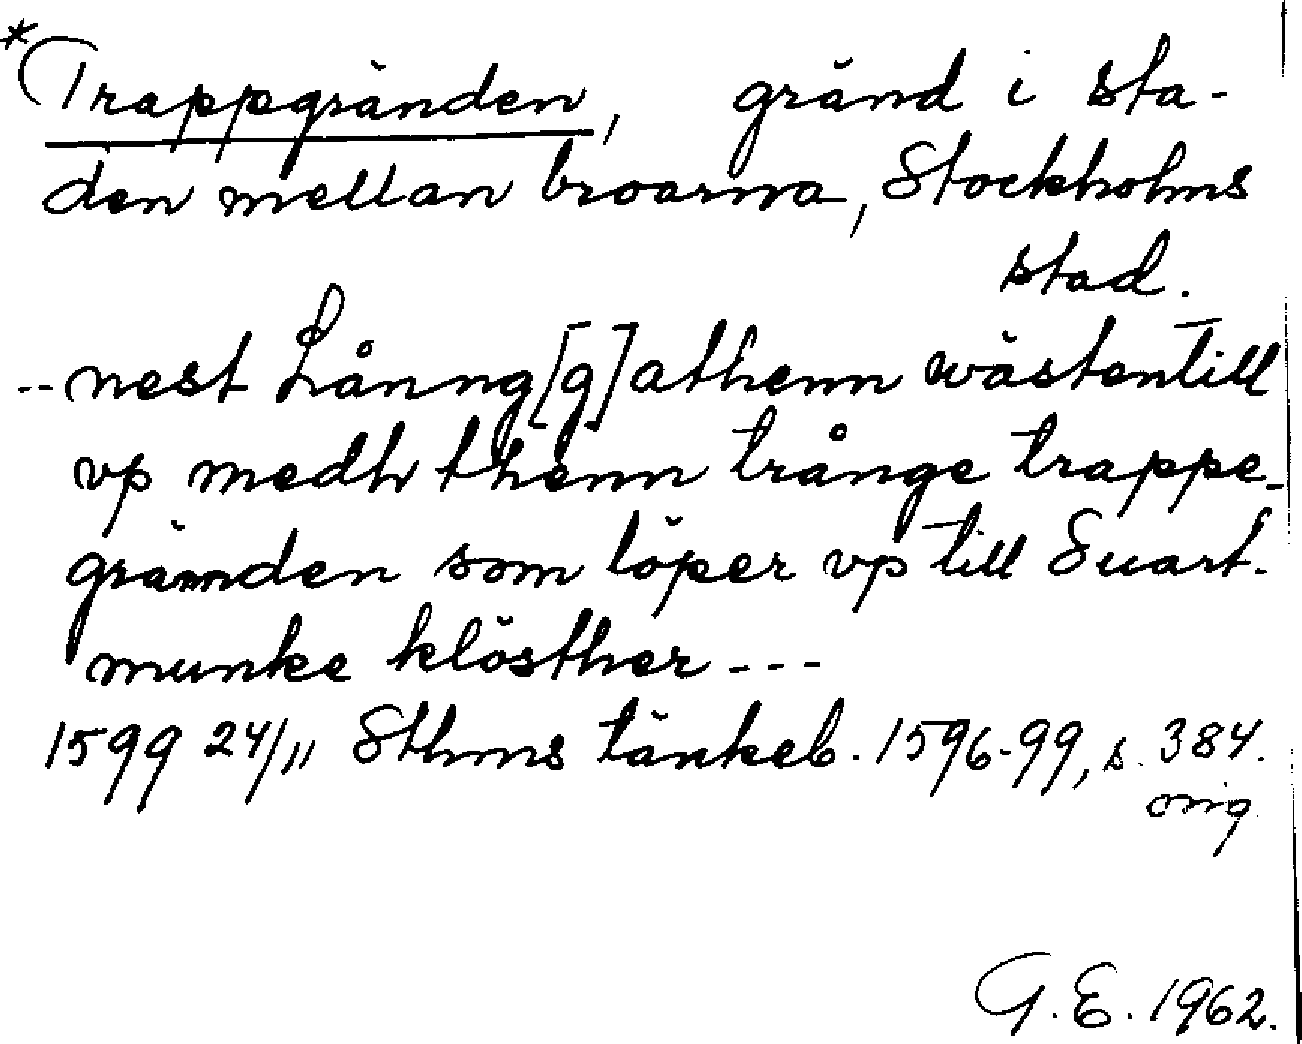 *Trappgränden, gränd i sta-
den mellan broarna, Stockholms
stad.
-- nest Långng[g]athenn wästentill
vp medh thenn trånge trappe-
gränden som löper vp till Suart-
munke klösther ---
1599 24/11 Sthms tänkeb. 1596-99, s. 384.
orig.
G. E. 1962.